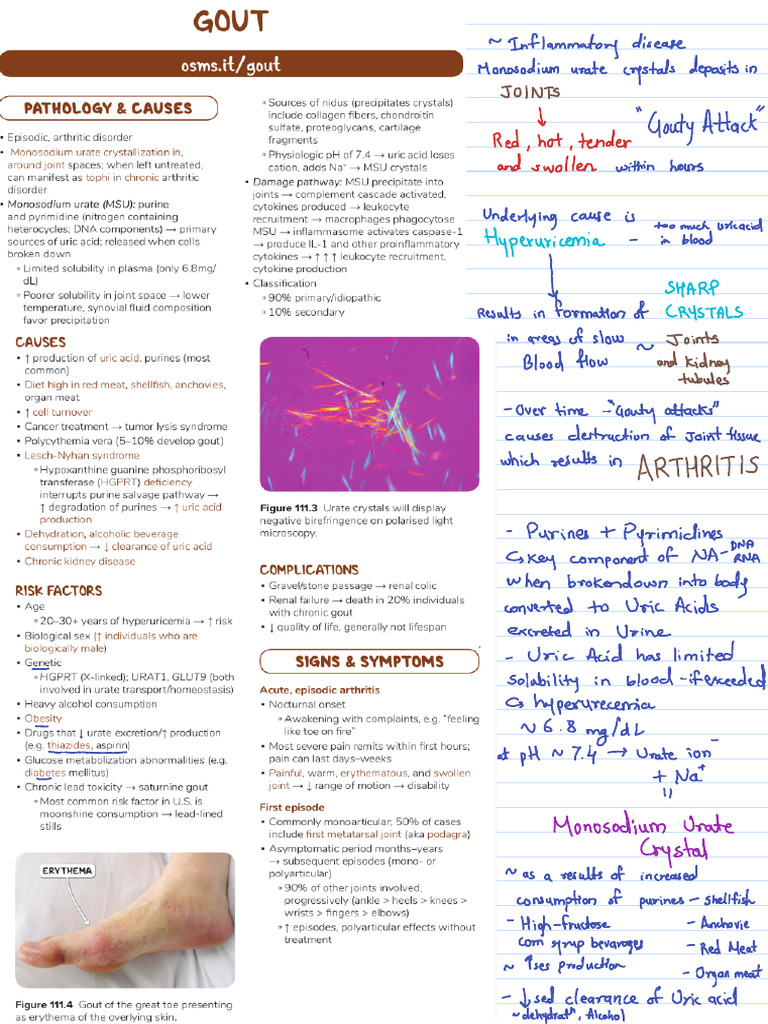 GOUT
osms.it/gout
PATHOLOGY & CAUSES
• Episodic, arthritic disorder
• Monosodium urate crystallization in,
around joint spaces; when left untreated,
can manifest as tophi in chronic arthritic
disorder
• Monosodium urate (MSU): purine
and pyrimidine (nitrogen containing
heterocycles; DNA components) → primary
sources of uric acid; released when cells
broken down
▫ Limited solubility in plasma (only 6.8mg/
dL)
▫ Poorer solubility in joint space → lower
temperature, synovial fluid composition
favor precipitation
CAUSES
• ↑ production of uric acid, purines (most
common)
• Diet high in red meat, shellfish, anchovies,
organ meat
• ↑ cell turnover
• Cancer treatment → tumor lysis syndrome
• Polycythemia vera (5–10% develop gout)
• Lesch-Nyhan syndrome
▫ Hypoxanthine guanine phosphoribosyl
transferase (HGPRT) deficiency
interrupts purine salvage pathway →
↑ degradation of purines → ↑ uric acid
production
• Dehydration, alcoholic beverage
consumption → ↓ clearance of uric acid
• Chronic kidney disease
RISK FACTORS
• Age
▫ 20–30+ years of hyperuricemia → ↑ risk
• Biological sex (↑ individuals who are
biologically male)
• Genetic
▫ HGPRT (X-linked); URAT1, GLUT9 (both
involved in urate transport/homeostasis)
• Heavy alcohol consumption
• Obesity
• Drugs that ↓ urate excretion/↑ production
(e.g. thiazides, aspirin)
• Glucose metabolization abnormalities (e.g.
diabetes mellitus)
• Chronic lead toxicity → saturnine gout
▫ Most common risk factor in U.S. is
moonshine consumption → lead-lined
stills
ERYTHEMA
Figure 111.4 Gout of the great toe presenting
as erythema of the overlying skin.
▫ Sources of nidus (precipitates crystals)
include collagen fibers, chondroitin
sulfate, proteoglycans, cartilage
fragments
▫ Physiologic pH of 7.4 → uric acid loses
cation, adds Na⁺ → MSU crystals
• Damage pathway: MSU precipitate into
joints → complement cascade activated,
cytokines produced → leukocyte
recruitment → macrophages phagocytose
MSU → inflammasome activates caspase-1
→ produce IL-1 and other proinflammatory
cytokines → ↑ ↑ ↑ leukocyte recruitment,
cytokine production
• Classification
▫ 90% primary/idiopathic
▫ 10% secondary
Figure 111.3 Urate crystals will display
negative birefringence on polarised light
microscopy.
COMPLICATIONS
• Gravel/stone passage → renal colic
• Renal failure → death in 20% individuals
with chronic gout
• ↓ quality of life, generally not lifespan
SIGNS & SYMPTOMS
Acute, episodic arthritis
• Nocturnal onset
▫ Awakening with complaints, e.g. "feeling
like toe on fire"
• Most severe pain remits within first hours;
pain can last days–weeks
• Painful, warm, erythematous, and swollen
joint → ↓ range of motion → disability
First episode
• Commonly monoarticular; 50% of cases
include first metatarsal joint (aka podagra)
• Asymptomatic period months–years
→ subsequent episodes (mono- or
polyarticular)
▫ 90% of other joints involved,
progressively (ankle > heels > knees >
wrists > fingers > elbows)
▫ ↑ episodes, polyarticular effects without
treatment
~ Inflammatory disease
Monosodium urate crystals deposits in
JOINTS
↓
"Gouty Attack"
Red, hot, tender
and swollen within hours
Underlying cause is
Hyperuricemia – too much uric acid
in blood
Results in formation of SHARP
CRYSTALS
in areas of slow
Blood flow ~ Joints
and kidney
tubules
- Over time - "Gouty attacks"
causes destruction of Joint tissue
which results in ARTHRITIS
- Purines + Pyrimidines
↳ key component of NA - DNA
RNA
when brokendown into body
converted to Uric Acids
excreted in Urine
- Uric Acid has limited
solubility in blood - if exceeded
↳ hyperurecemia
~ 6.8 mg/dL
at pH ~ 7.4 → Urate ion⁻
+ Na⁺
Monosodium Urate
Crystal
~ as a results of increased
consumption of purines - shellfish
- High-fructose
corn syrup bevarages
- Anchovie
- Red Meat
- Organ meat
~ ↑ses production
- ↓sed clearance of Uric acid
~ dehydratⁿ, Alcohol